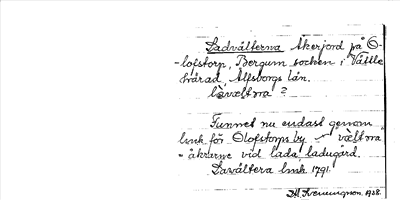 Ladvälterna Åkerjord på O-
-lofstorp, Bergum socken i Vättle
härad Älfsborgs län.
lavæltna ?
Funnet nu endast genom
bruk för Olofstorps by - væltna
- åkrarne vid lada, ladugård.
Lavältera bruk 1791.
Svenningson, 1928.